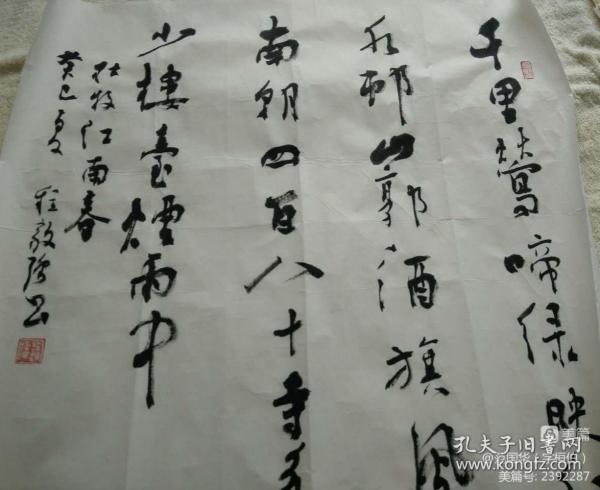 千里鶯啼绿映
水邨山郭酒旗風
南朝四百八十寺多
少樓臺煙雨中
杜牧江南春
癸巳夏 程敬
书
美篇
孔夫子旧书网
www.kongfz.com
美篇号: 2392287